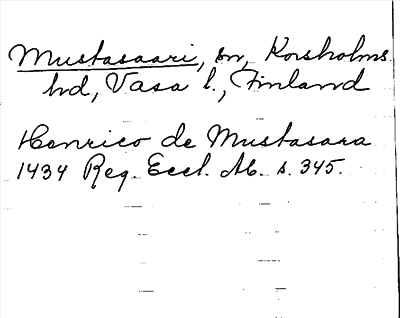 Mustasaari, sn, Korsholms
hd, Vasa l., Finland
Henrico de Mustasara
1434 Reg. Eccl. Ab. s. 345.